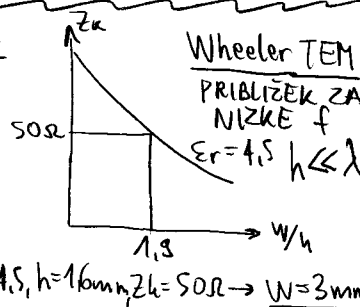 Zk
Wheeler TEM
PRIBLIŽEK ZA
NIZKE f
εr=4,5 h≪λ
50Ω
1,9
W/h
4,5, h=1,6mm, Zk=50Ω→ W=3mm